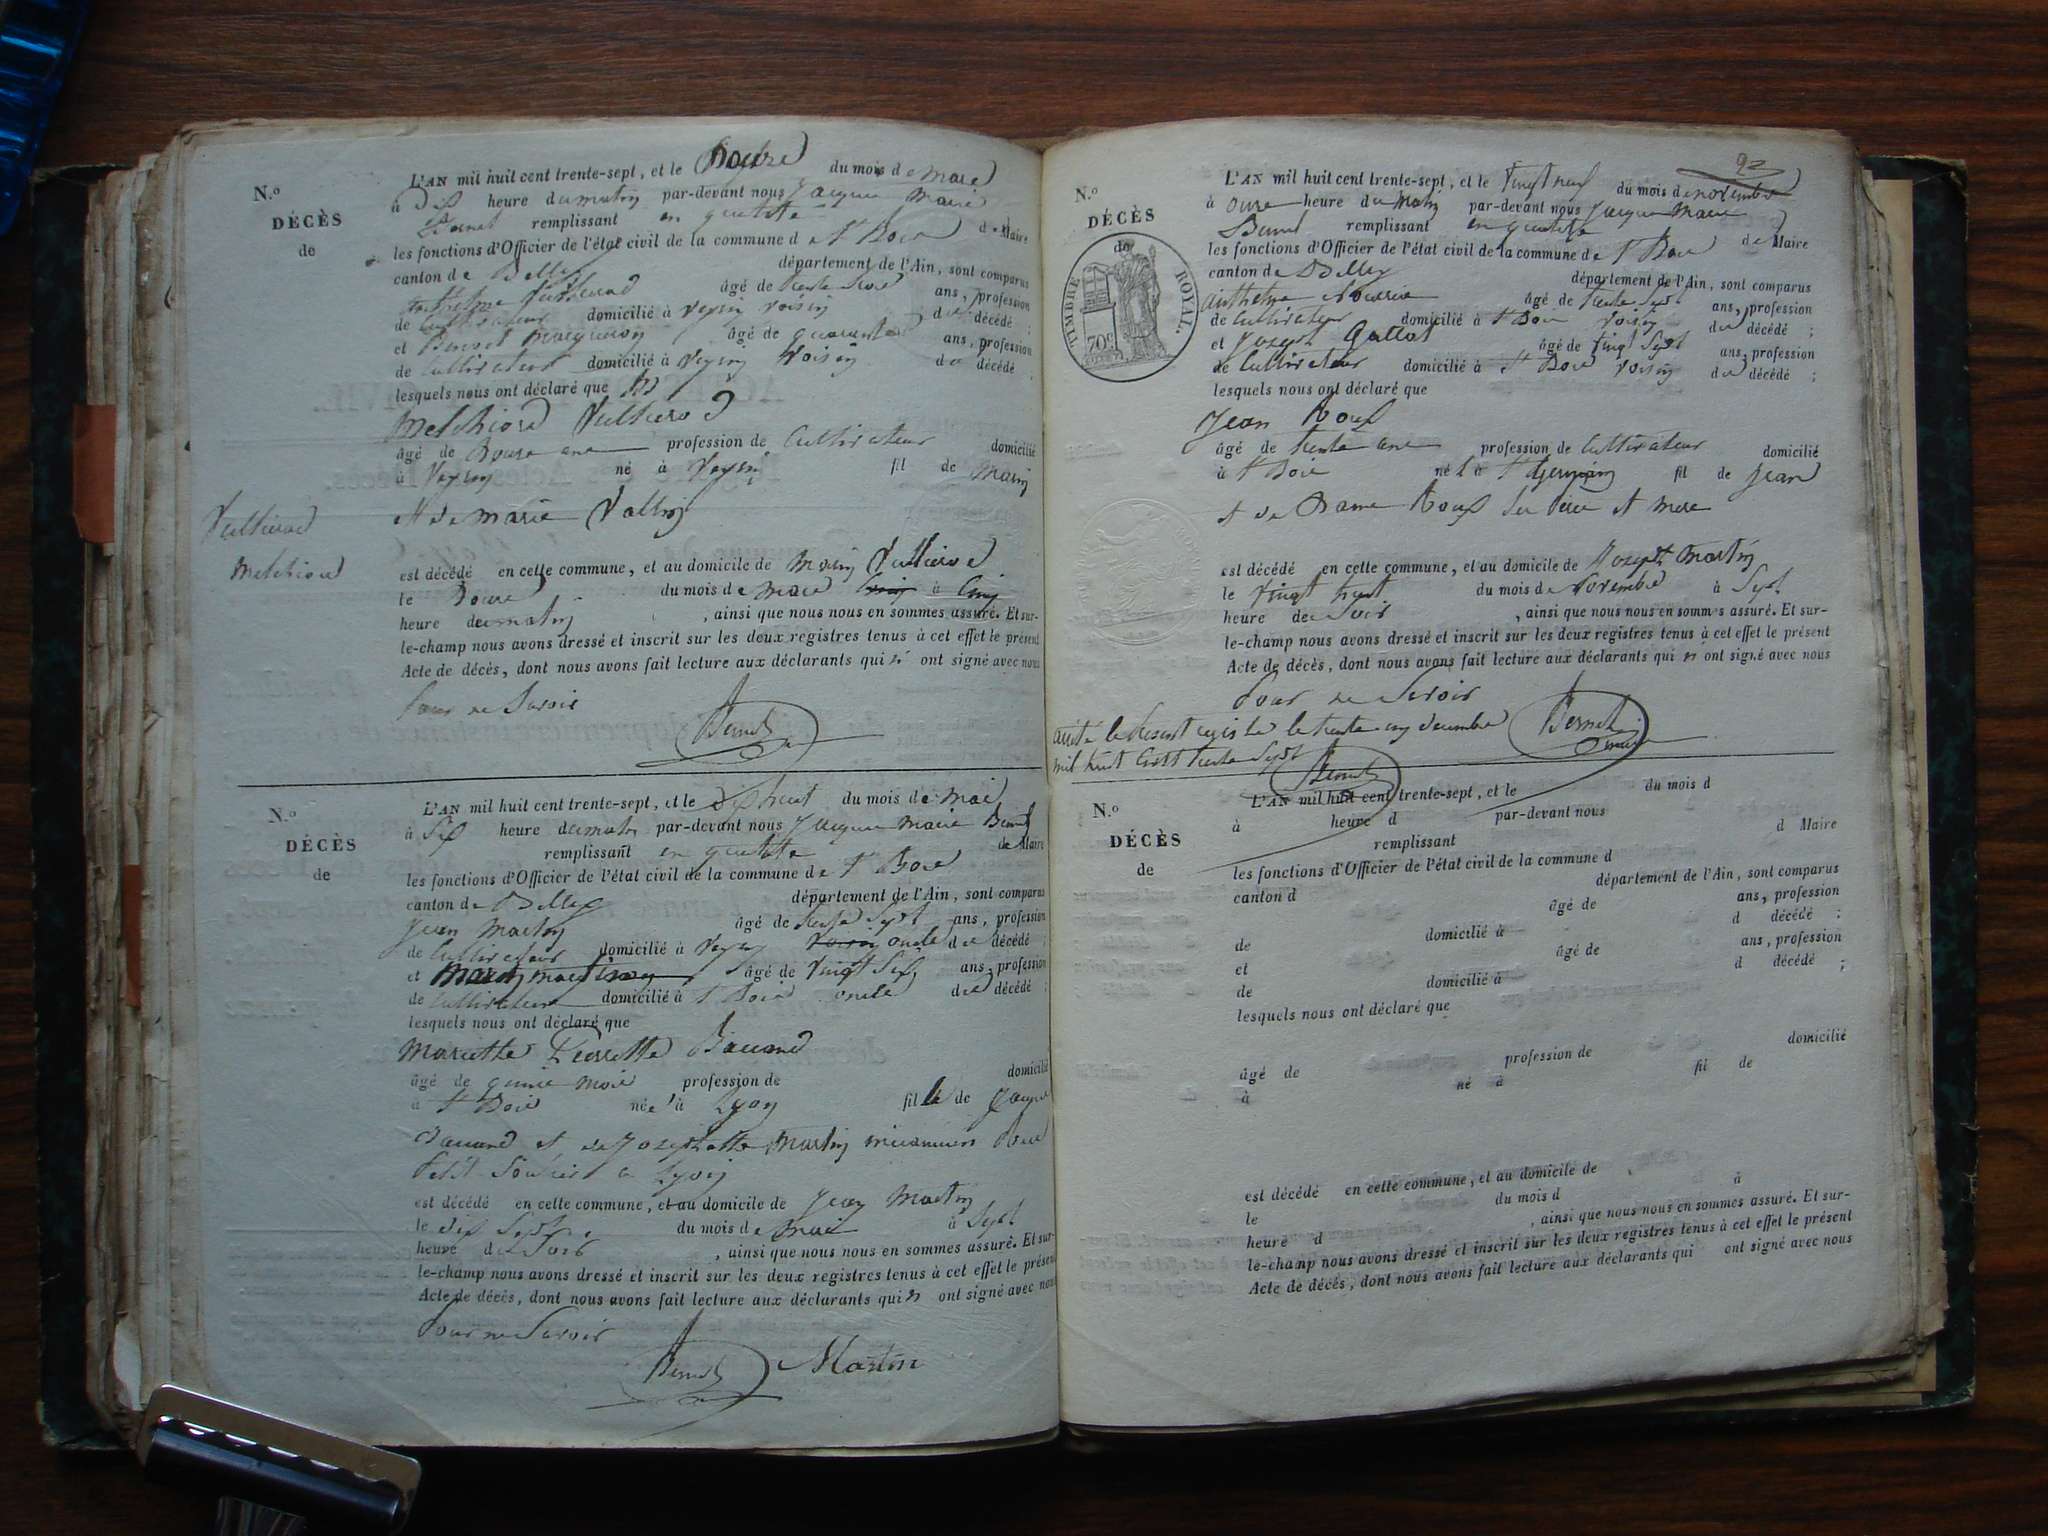 N.o
DÉCÈS
de
L'AN mil huit cent trente-sept, et le Douze du mois de mars
à Dix heure du matin par-devant nous Jacques Marie
Bernet remplissant en qualité de Maire
les fonctions d'Officier de l'état civil de la commune de St Bois
canton de Belley département de l'Ain, sont comparus
Anthelme Vullierod âgé de trente trois ans, profession
de Cultivateur domicilié à Veyrin voisin du décédé ;
et Benoit âgé de quarante ans, profession
de Cultivateur domicilié à Veyrin voisin du décédé ;
lesquels nous ont déclaré que
Melchiord Vullierod
âgé de Douze ans profession de Cultivateur domicilié
à Veyrin né à Veyrin fil de Marin
et de marie Vallin
Vullierod
Melchiord
est décédé en cette commune, et au domicile de Marin Vullierod
le Douze du mois de mars à Cinq
heure du matin , ainsi que nous nous en sommes assuré. Et sur-
le-champ nous avons dressé et inscrit sur les deux registres tenus à cet effet le présent
Acte de décès, dont nous avons fait lecture aux déclarants qui n' ont signé avec nous
Pour ne Savoir
Bernet
N.o
DÉCÈS
de
L'AN mil huit cent trente-sept, et le Dix huit du mois de mai
à Six heure du matin par-devant nous Jacques Marie Bernet
remplissant en qualité de Maire
les fonctions d'Officier de l'état civil de la commune de St Bois
canton de Belley département de l'Ain, sont comparus
Jean Martin âgé de trente Sept ans, profession
de Cultivateur domicilié à Veyrin oncle du décédé ;
et âgé de Vingt Six ans, profession
de Cultivateur domicilié à St Bois oncle du décédé ;
lesquels nous ont déclaré que
Mariette Pierrette
âgé de quinze mois profession de domicilié
à St Bois née à Lyon fille de Jacques
et de Josephette Martin
à Lyon
est décédé en cette commune, et au domicile de Jean Martin
le dix Sept du mois de mai à Sept
heure de Soir , ainsi que nous nous en sommes assuré. Et sur-
le-champ nous avons dressé et inscrit sur les deux registres tenus à cet effet le présent
Acte de décès, dont nous avons fait lecture aux déclarants qui n' ont signé avec nous
Pour ne Savoir
Bernet Martin
92
N.o
DÉCÈS
de
TIMBRE ROYAL.
70c
L'AN mil huit cent trente-sept, et le Vingt neuf du mois de novembre
à onze heure du Matin par-devant nous Jacques Marie
Bernet remplissant en qualité de Maire
les fonctions d'Officier de l'état civil de la commune de St Bois
canton de Belley département de l'Ain, sont comparus
Anthelme âgé de trente Sept ans, profession
de Cultivateur domicilié à St Bois voisin du décédé ;
et Joseph Gallot âgé de Vingt Sept ans, profession
de Cultivateur domicilié à St Bois voisin du décédé ;
lesquels nous ont déclaré que
Jean Roux
âgé de trente ans profession de Cultivateur domicilié
à St Bois né à St Germain fil de Jean
et de Roux Ses père et mère
est décédé en cette commune, et au domicile de Joseph Martin
le Vingt huit du mois de Novembre à Sept
heure de Soir , ainsi que nous nous en sommes assuré. Et sur-
le-champ nous avons dressé et inscrit sur les deux registres tenus à cet effet le présent
Acte de décès, dont nous avons fait lecture aux déclarants qui n' ont signé avec nous
Pour ne Savoir
Bernet maire
arrêté le présent registre le trente un décembre
mil huit Cent trente Sept
Bernet
N.o
DÉCÈS
de
L'AN mil huit cent trente-sept, et le du mois d
à heure d par-devant nous
remplissant d Maire
les fonctions d'Officier de l'état civil de la commune d
canton d département de l'Ain, sont comparus
âgé de ans, profession
de domicilié à d décédé ;
et âgé de ans, profession
de domicilié à d décédé ;
lesquels nous ont déclaré que
âgé de profession de domicilié
à né à fil de
est décédé en cette commune, et au domicile de
le du mois d à
heure d , ainsi que nous nous en sommes assuré. Et sur-
le-champ nous avons dressé et inscrit sur les deux registres tenus à cet effet le présent
Acte de décès, dont nous avons fait lecture aux déclarants qui ont signé avec nous